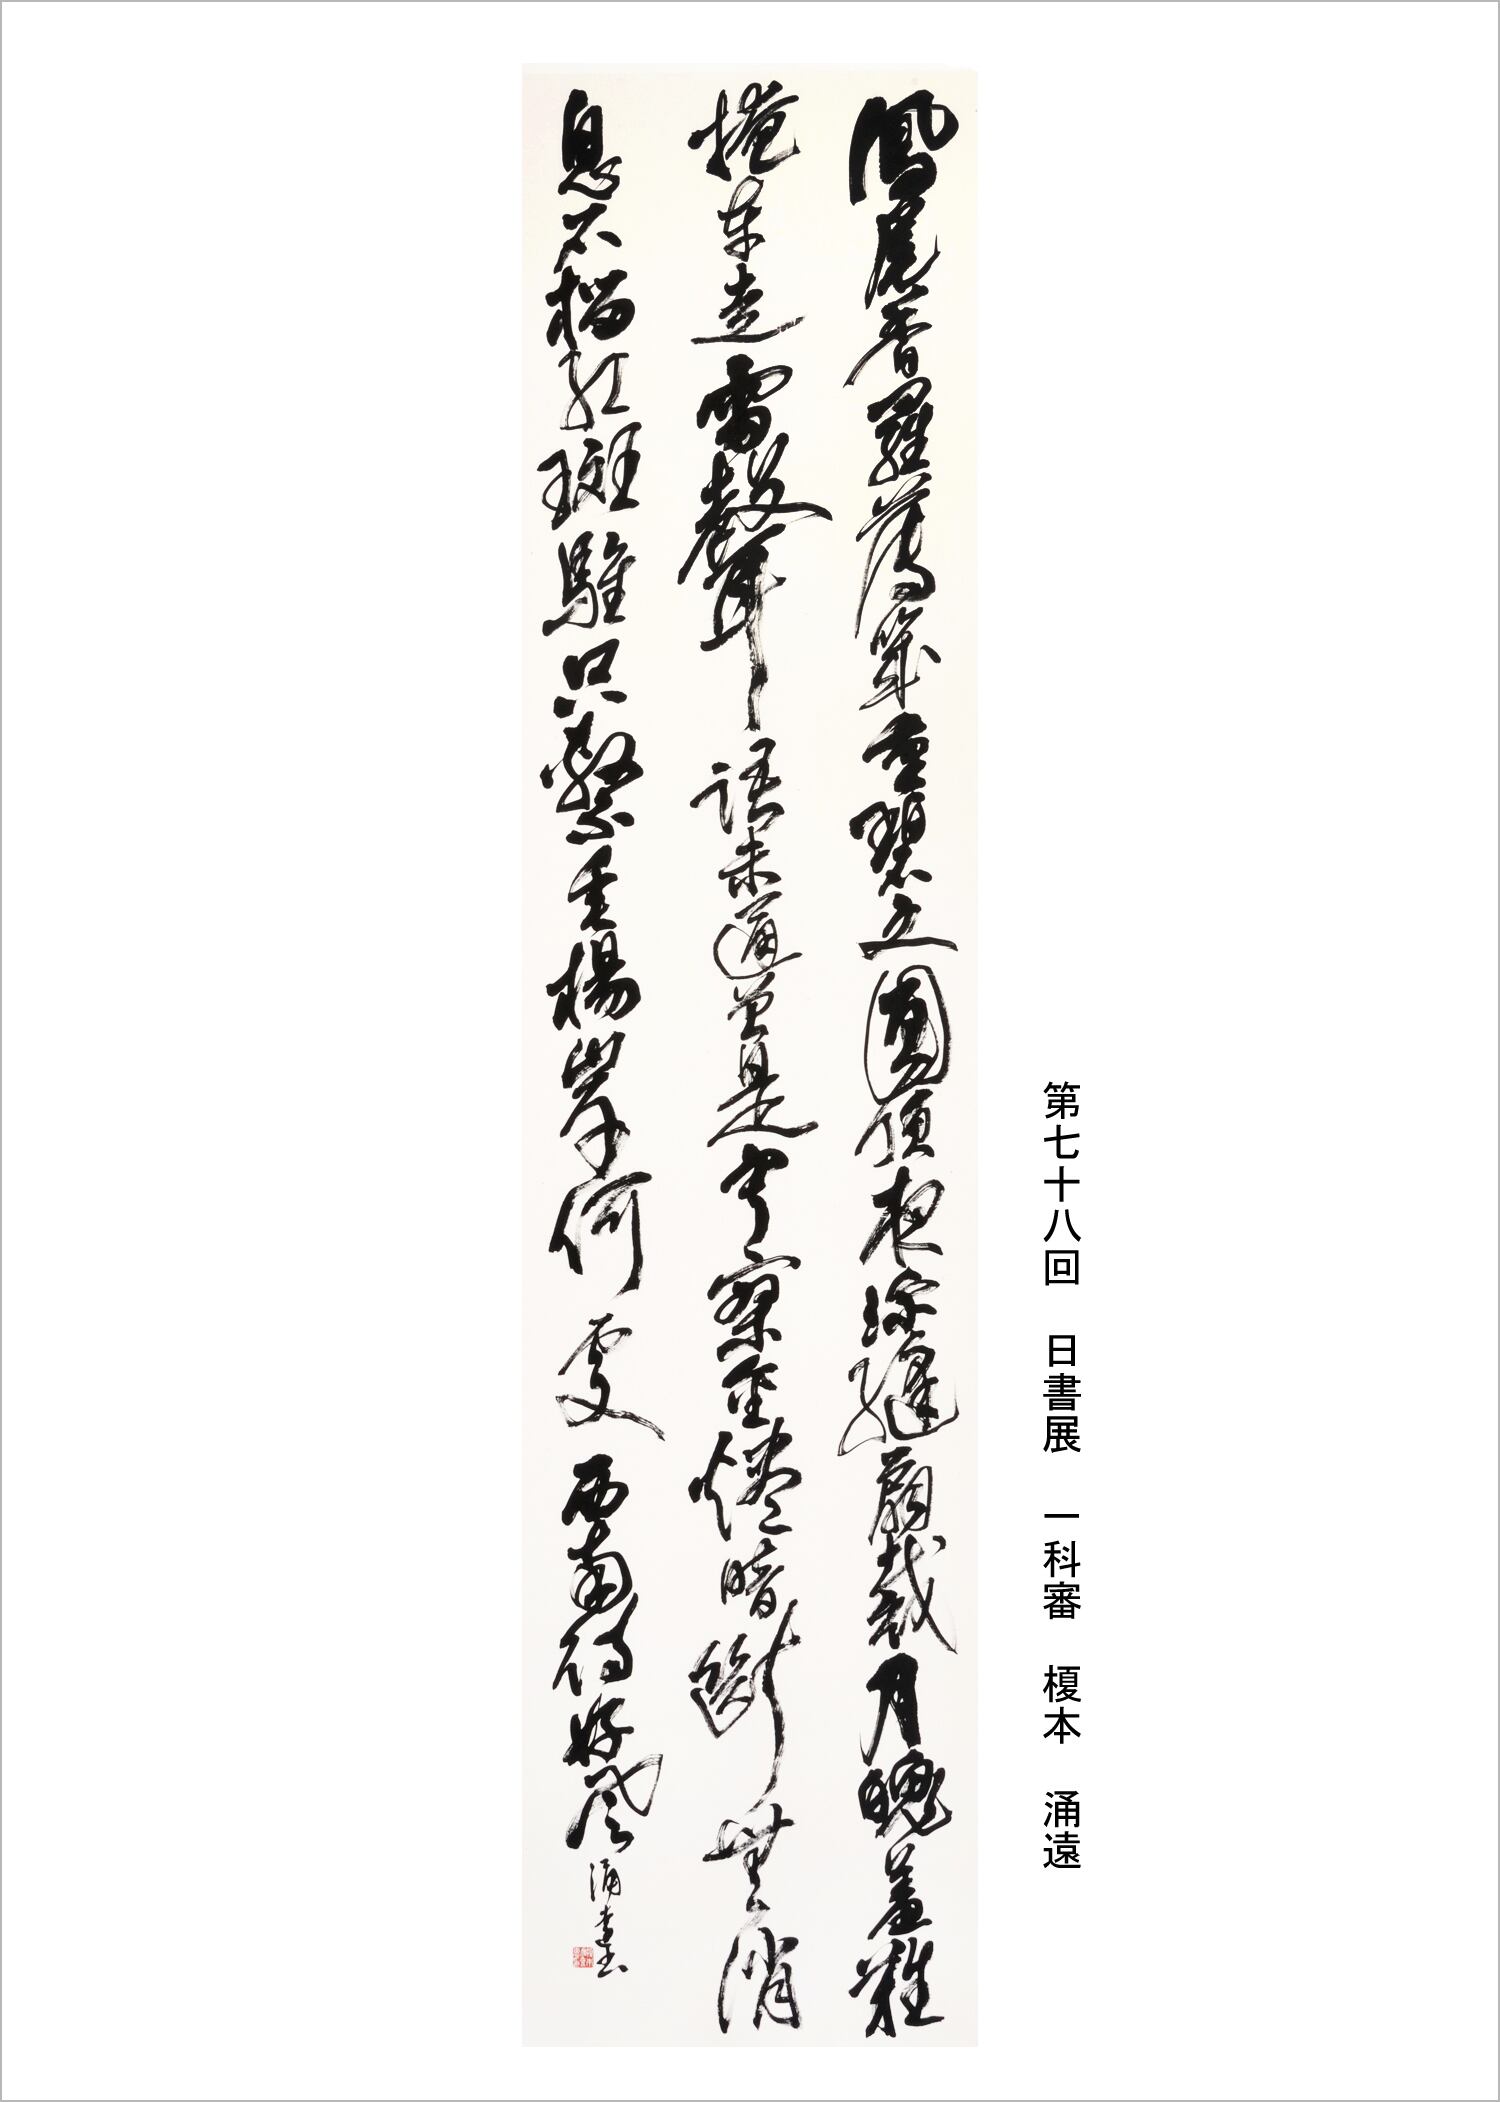 第七十八回　日書展　一科審　榎本　涌遠
鳳尾香羅薄幾重碧文圓頂夜深縫扇裁月魄羞難
掩車走雷聲語未通曾是寂寥金燼暗斷無消
息石榴紅斑騅只繫垂楊岸何處西南待好風　涌遠書